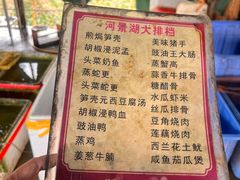 河景湖大排档
煎焗笋壳
胡椒浸泥孟
头菜奶鱼
蒸蛇更、
头菜蛇更
笋壳元西豆腐汤
胡椒浸鸭血
豉油鸭
蒸鸡
姜葱牛腩
美味猪手
豉油王大肠
蒸蟹高
蒜香牛排骨
糖醋骨
水瓜虾米
丝瓜排骨
豆角烧肉
莲藕烧肉
西兰花土鱿
咸鱼茄瓜煲